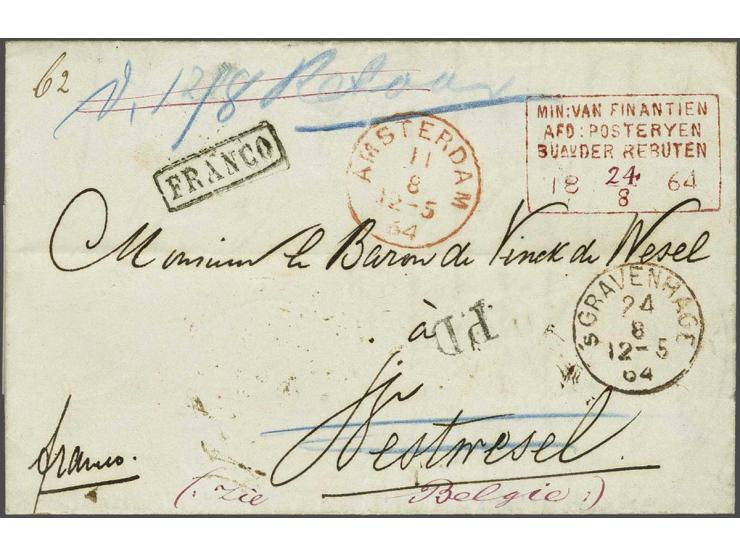 62
V. 12/8 Retour
FRANCO
AMSTERDAM
11
8
12-5
64
MIN: VAN FINANTIEN
AFD: POSTERYEN
BUAU DER REBUTEN
18 24/8 64
Monsieur le Baron de Vinck de Wesel
à
PD
'S GRAVENHAGE
24
8
12-5
64
Westwesel.
franco.
(: Zie Belgie :)